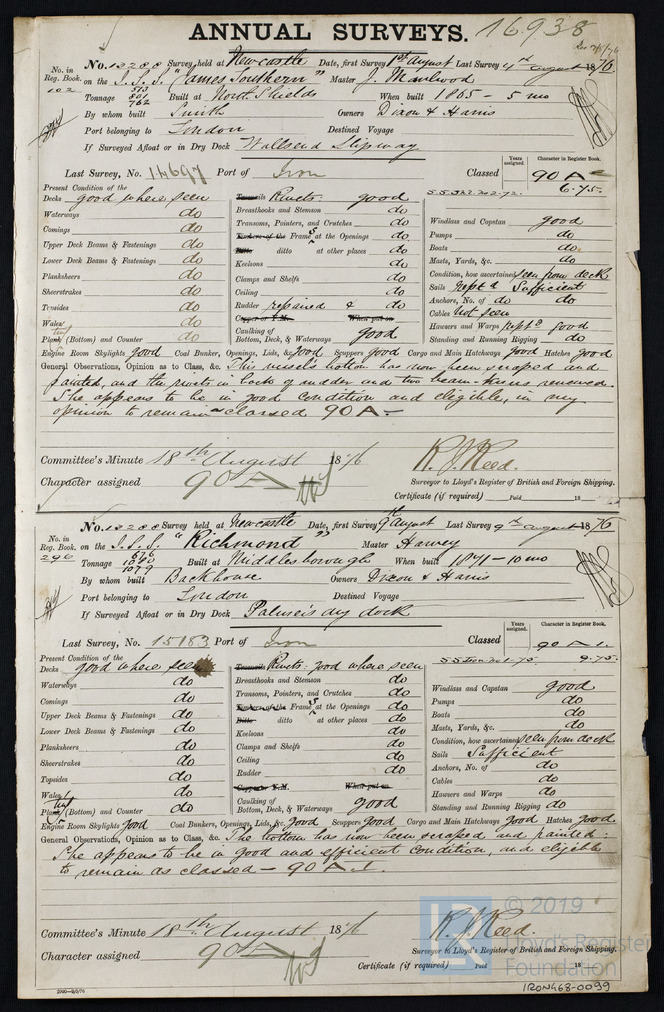 ANNUAL SURVEYS. 16938
No. in Reg. Book. No. 13288 Survey held at Newcastle Date, first Survey 1st August Last Survey 4th August 1876
102 on the I.S.S. "James Southern" Master J.
Tonnage 513 801 762 Built at North Shields When built 1865 - 5 mo
By whom built Smith Owners Dixon & Harris
Port belonging to London Destined Voyage
If Surveyed Afloat or in Dry Dock Wallsend Slipway
Last Survey, No. 14697 Port of Iron Classed Years assigned. Character in Register Book. 90 A
6-75.
Present Condition of the
Decks good where seen
Waterways do
Comings do
Upper Deck Beams & Fastenings do
Lower Deck Beams & Fastenings do
Planksheers do
Sheerstrakes do
Topsides do
Wales do
Plank (Bottom) and Counter do
Rivets good
Breasthooks and Stemson do
Transoms, Pointers, and Crutches do
Frames at the Openings do
ditto at other places do
Keelsons do
Clamps and Shelfs do
Ceiling do
Rudder repaired & do
Copper or Y.M. When put on
Caulking of
Bottom, Deck, & Waterways good
Windlass and Capstan good
Pumps do
Boats do
Masts, Yards, &c. do
Condition, how ascertained seen from deck
Sails Sufficient
Anchors, No. of do do
Cables not seen
Hawsers and Warps good
Standing and Running Rigging do
Engine Room Skylights good Coal Bunker, Openings, Lids, &c. good Scuppers good Cargo and Main Hatchways good Hatches good
General Observations, Opinion as to Class, &c. This vessel's bottom has now been scraped and
painted, and the rivets in back of rudder and two beam-knees renewed.
She appears to be in good condition and eligible, in my
opinion to remain classed 90 A-
Committee's Minute 18th August 1876 R. J. Reed.
Character assigned 90 A Surveyor to Lloyd's Register of British and Foreign Shipping.
Certificate (if required) Paid 18
No. in Reg. Book. No. 13288 Survey held at Newcastle Date, first Survey 9th August Last Survey 9th August 1876
296 on the I.S.S. "Richmond" Master Harvey
Tonnage 676 1040 1079 Built at Middlesborough When built 1871 - 10 mo
By whom built Backhouse Owners Dixon & Harris
Port belonging to London Destined Voyage
If Surveyed Afloat or in Dry Dock Palmer's dry dock
Last Survey, No. 15183 Port of Iron Classed Years assigned. Character in Register Book. 90 A.1.
9-75.
Present Condition of the
Decks good where seen
Waterways do
Comings do
Upper Deck Beams & Fastenings do
Lower Deck Beams & Fastenings do
Planksheers do
Sheerstrakes do
Topsides do
Wales do
Plank (Bottom) and Counter do
Rivets good where seen
Breasthooks and Stemson do
Transoms, Pointers, and Crutches do
Frames at the Openings do
ditto at other places do
Keelsons do
Clamps and Shelfs do
Ceiling do
Rudder do
Copper or Y.M. When put on
Caulking of
Bottom, Deck, & Waterways good
Windlass and Capstan good
Pumps do
Boats do
Masts, Yards, &c. do
Condition, how ascertained seen from deck
Sails Sufficient
Anchors, No. of do
Cables do
Hawsers and Warps do
Standing and Running Rigging do
Engine Room Skylights good Coal Bunker, Openings, Lids, &c. good Scuppers good Cargo and Main Hatchways good Hatches good
General Observations, Opinion as to Class, &c. The bottom has now been scraped and painted:
She appears to be in good and efficient condition, and eligible
to remain as classed - 90 A.1.
Committee's Minute 18th August 1876 R. J. Reed.
Character assigned 90 A Surveyor to Lloyd's Register of British and Foreign Shipping.
Certificate (if required) Paid 18
© 2019
Lloyd's Register
Foundation
IRON468-0099